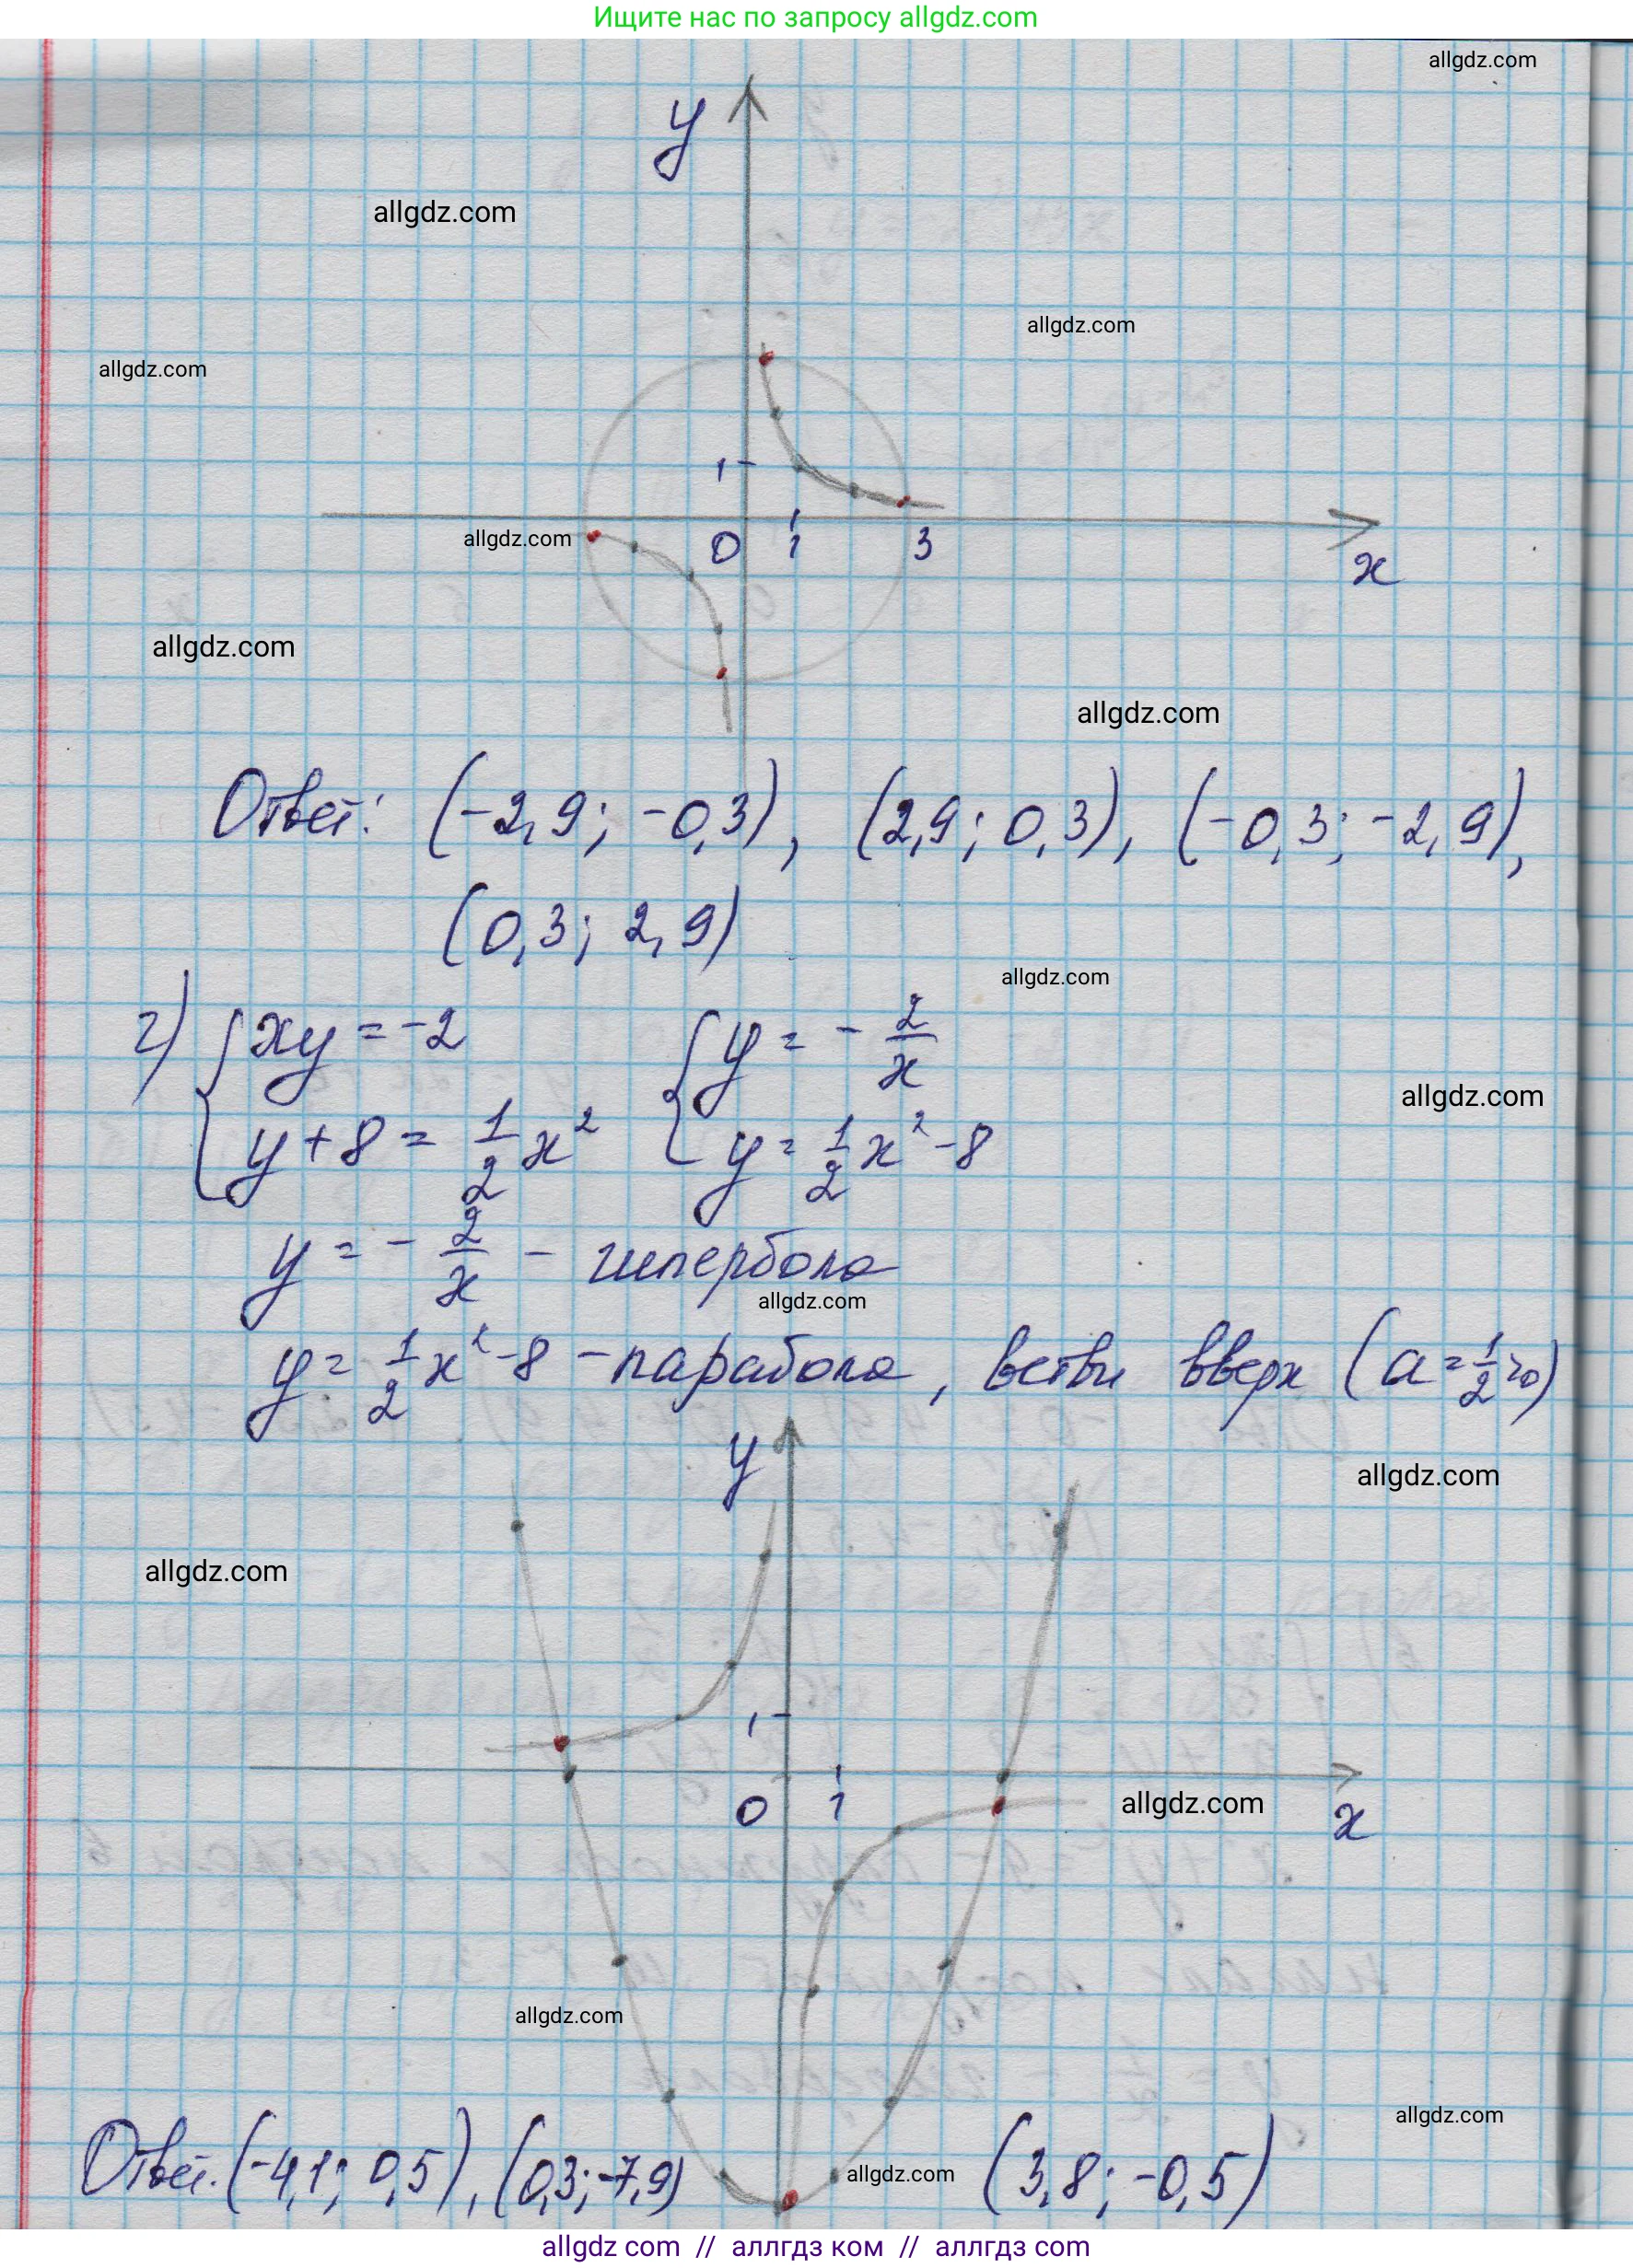 Ищите нас по запросу allgdz.com
allgdz.com
y
allgdz.com
allgdz.com
allgdz.com
1
allgdz.com
0 1 3
x
allgdz.com
allgdz.com
Ответ: (-2,9; -0,3), (2,9; 0,3), (-0,3; -2,9),
(0,3; 2,9)
allgdz.com
г) { xy = -2 { y = - 2/x
allgdz.com
y + 8 = 1/2 x² y = 1/2 x² - 8
y = - 2/x - гипербола
allgdz.com
y = 1/2 x² - 8 - парабола, ветви вверх (a = 1/2 > 0)
y
allgdz.com
allgdz.com
1
0 1
allgdz.com
x
allgdz.com
allgdz.com
Ответ. (-4,1; 0,5), (0,3; -7,9) allgdz.com (3,8; -0,5)
allgdz com // аллгдз ком // аллгдз com